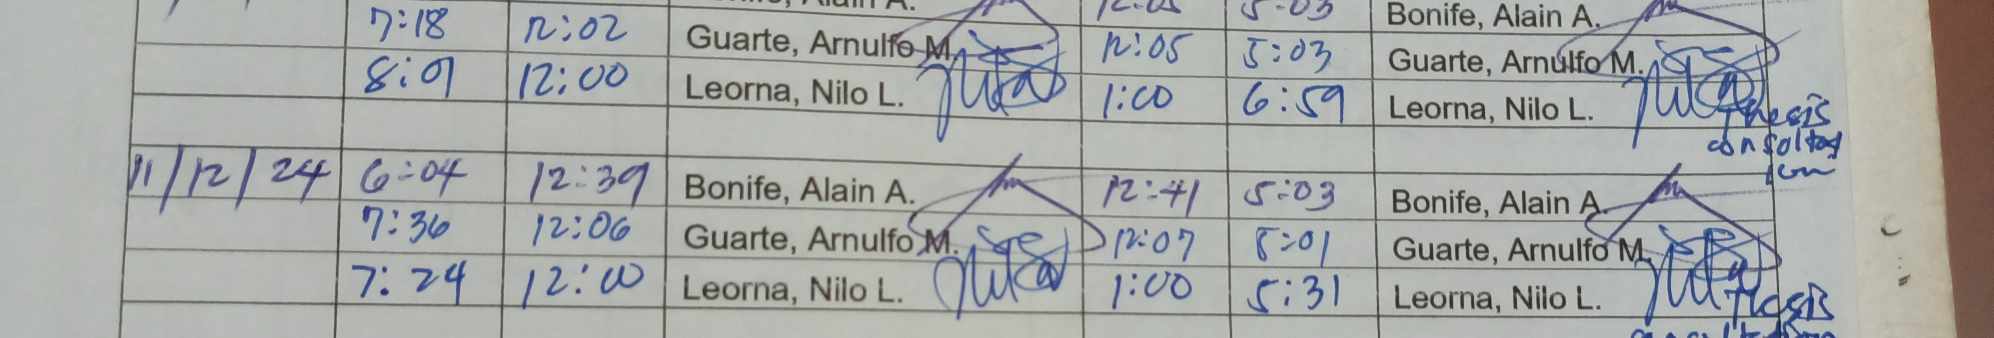 12:05 5:03 Bonife, Alain A.
7:18 12:02 Guarte, Arnulfo M. 12:05 5:03 Guarte, Arnulfo M.
8:01 12:00 Leorna, Nilo L. 1:00 6:59 Leorna, Nilo L. Thesis
consoltation
11/12/24 6:04 12:39 Bonife, Alain A. 12:41 5:03 Bonife, Alain A.
7:36 12:06 Guarte, Arnulfo M. 12:07 5:01 Guarte, Arnulfo M.
7:24 12:00 Leorna, Nilo L. 1:00 5:31 Leorna, Nilo L. Thesis